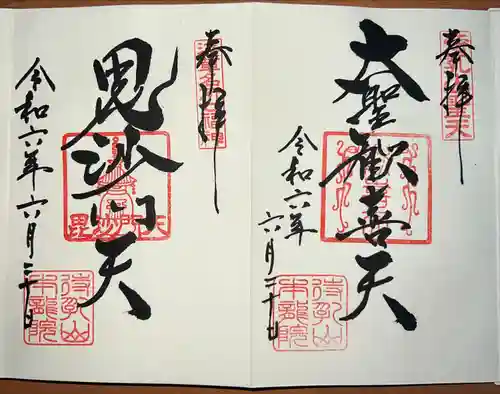 奉拝
大聖歓喜天
令和六年
六月三十日
待乳山
本龍院
奉拝
毘沙門天
令和六年六月三十日
待乳山
本龍院